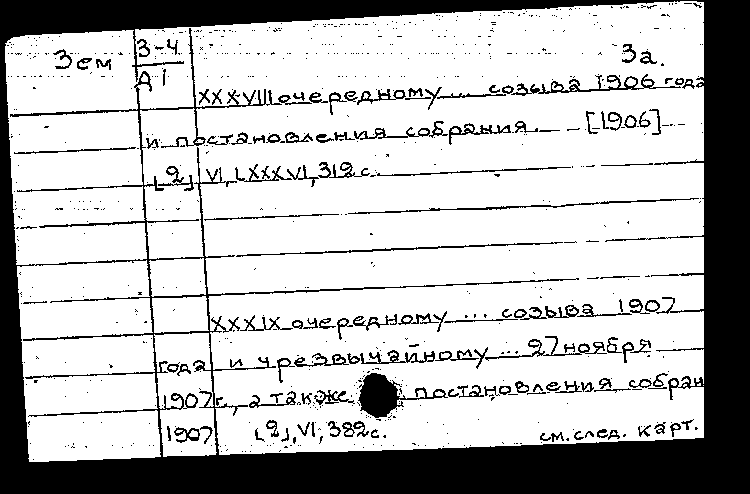 Зем 3-4 3а.
А I
XXXVIII очередному ... созыва 1906 года
и постановления собрания. [1906]
[2] VI, LXXXVI, 312 с.
XXXIX очередному ... созыва 1907
года и чрезвычайному ... 27 ноября
1907 г., а также постановления собран
1907 [2], VI, 382 с.
см. след. карт.